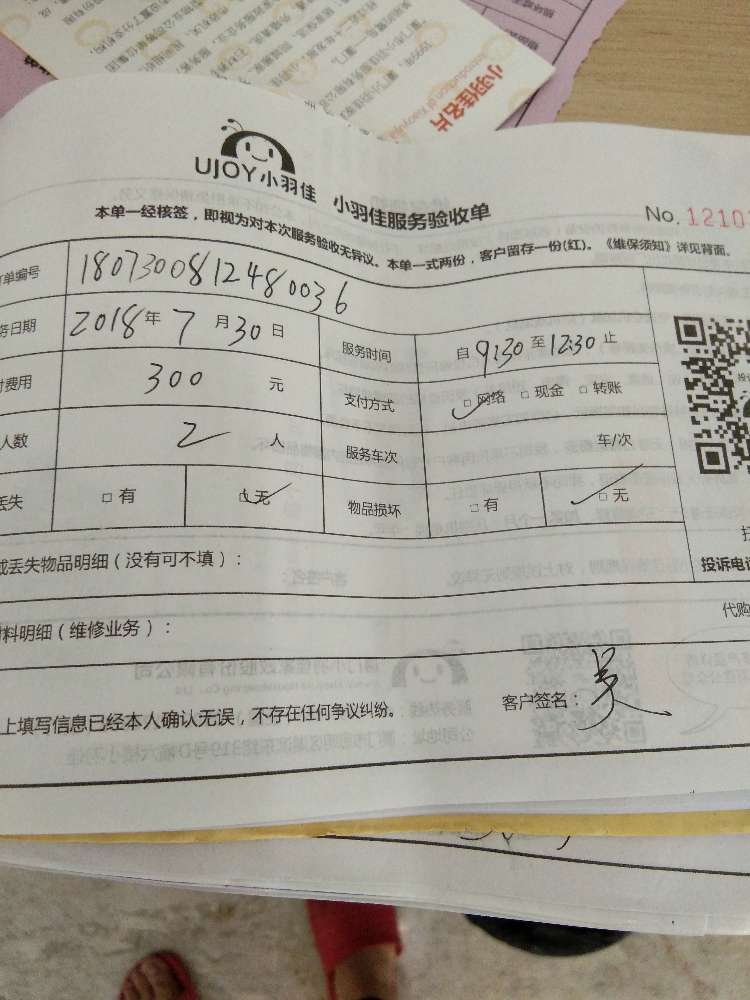 小羽佳名片
UJOY小羽佳 小羽佳服务验收单
No. 1210
本单一经核签，即视为对本次服务验收无异议。本单一式两份，客户留存一份(红)。《维保须知》详见背面。
单编号 1807300812480036
务日期 2018年7月30日 服务时间 自9:30至12:30止
付费用 300 元 支付方式 □网络 □现金 □转账
人数 2 人 服务车次 车/次
丢失 □有 □无 物品损坏 □有 □无
或丢失物品明细（没有可不填）：
投诉电话
材料明细（维修业务）： 代购
上填写信息已经本人确认无误，不存在任何争议纠纷。 客户签名：吴